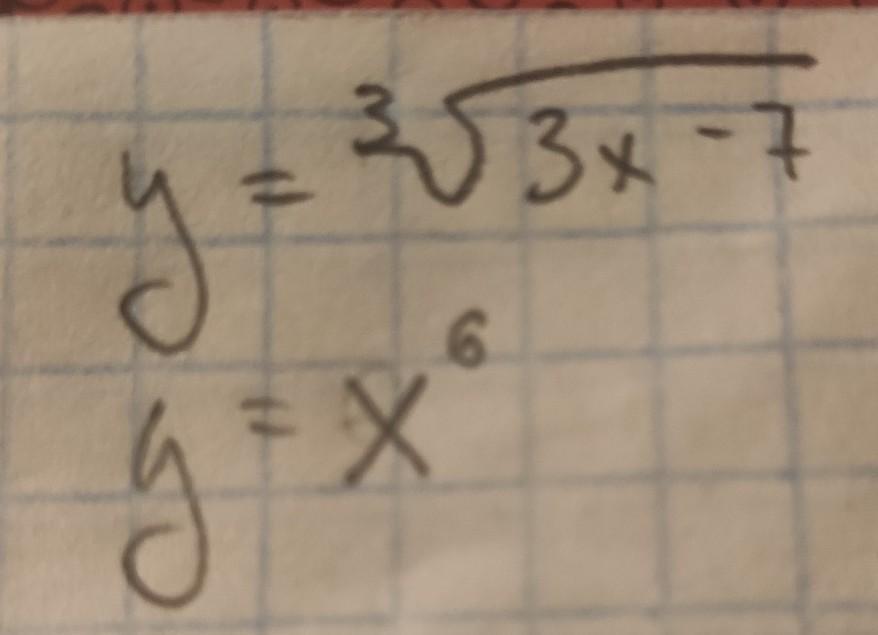 y = ∛(3x - 7)
y = x⁶